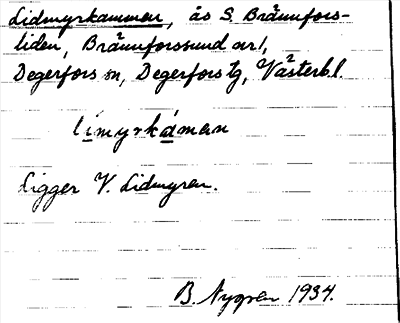 Lidmyrkammen, ås S. Brännfors-
liden, Brännforssund nr 1,
Degerfors sn, Degerfors tg, Västerb. l.
límyrkáman
Ligger V. Lidmyren.
B. Nygren 1934.